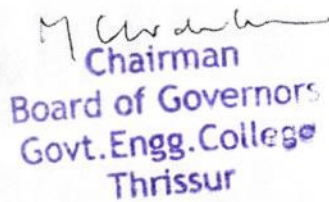 Chairman
Board of Governors
Govt.Engg.College
Thrissur